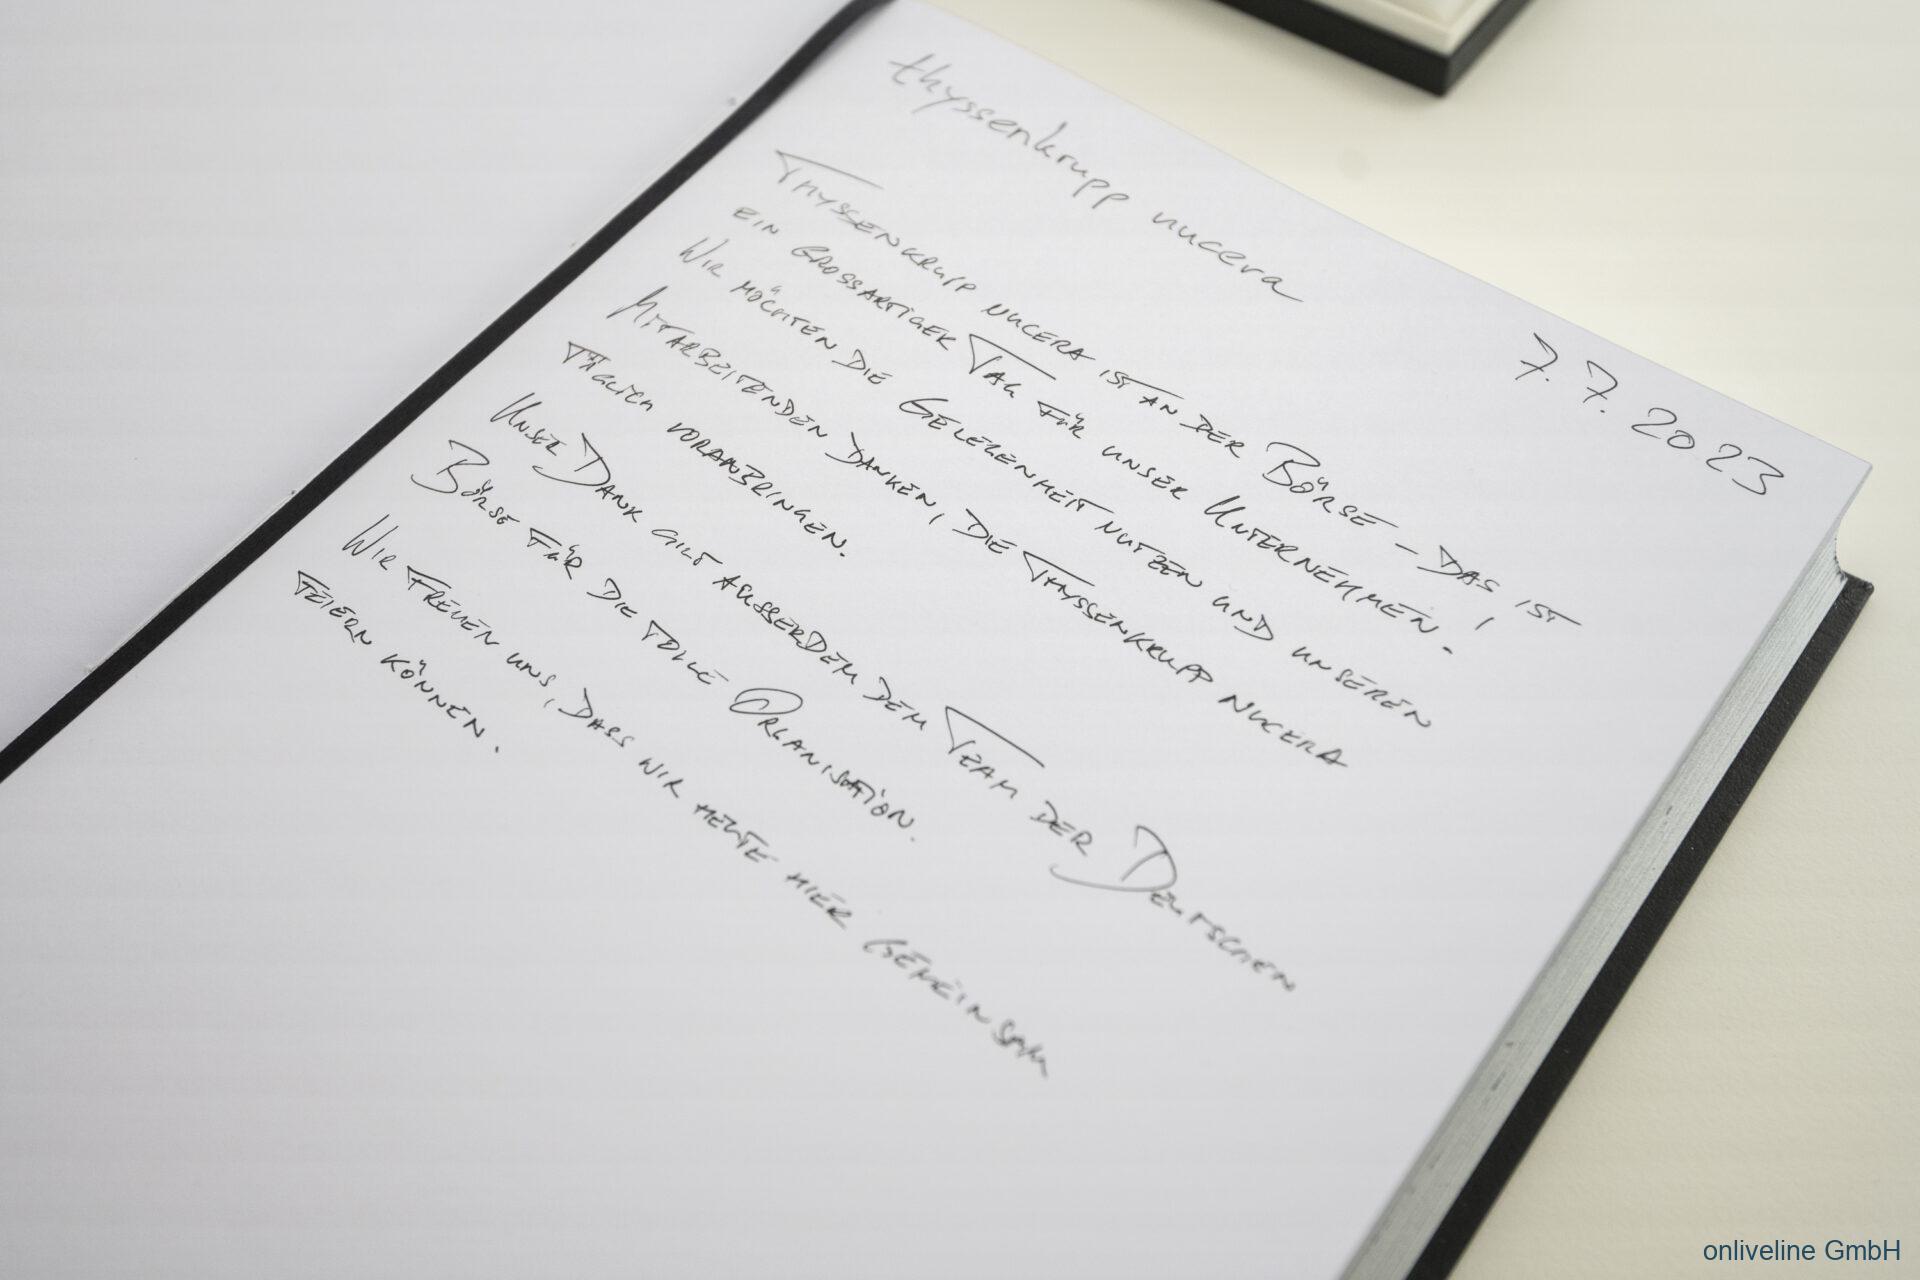 thyssenkrupp nucera
7.7.2023
THYSSENKRUPP NUCERA IST AN DER BÖRSE – DAS IST
EIN GROSSARTIGER TAG FÜR UNSER UNTERNEHMEN. !
WIR MÖCHTEN DIE GELEGENHEIT NUTZEN UND UNSEREN
MITARBEITENDEN DANKEN, DIE THYSSENKRUPP NUCERA
TÄGLICH VORANBRINGEN.
UNSER DANK GILT AUSSERDEM DEM TEAM DER DEUTSCHEN
BÖRSE FÜR DIE TOLLE ORGANISATION.
WIR FREUEN UNS, DASS WIR HEUTE HIER GEMEINSAM
FEIERN KÖNNEN.
onliveline GmbH